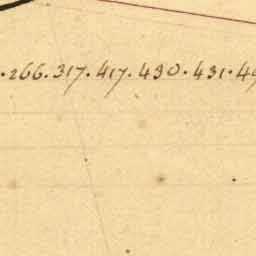 ·266·317·417·430·431·4